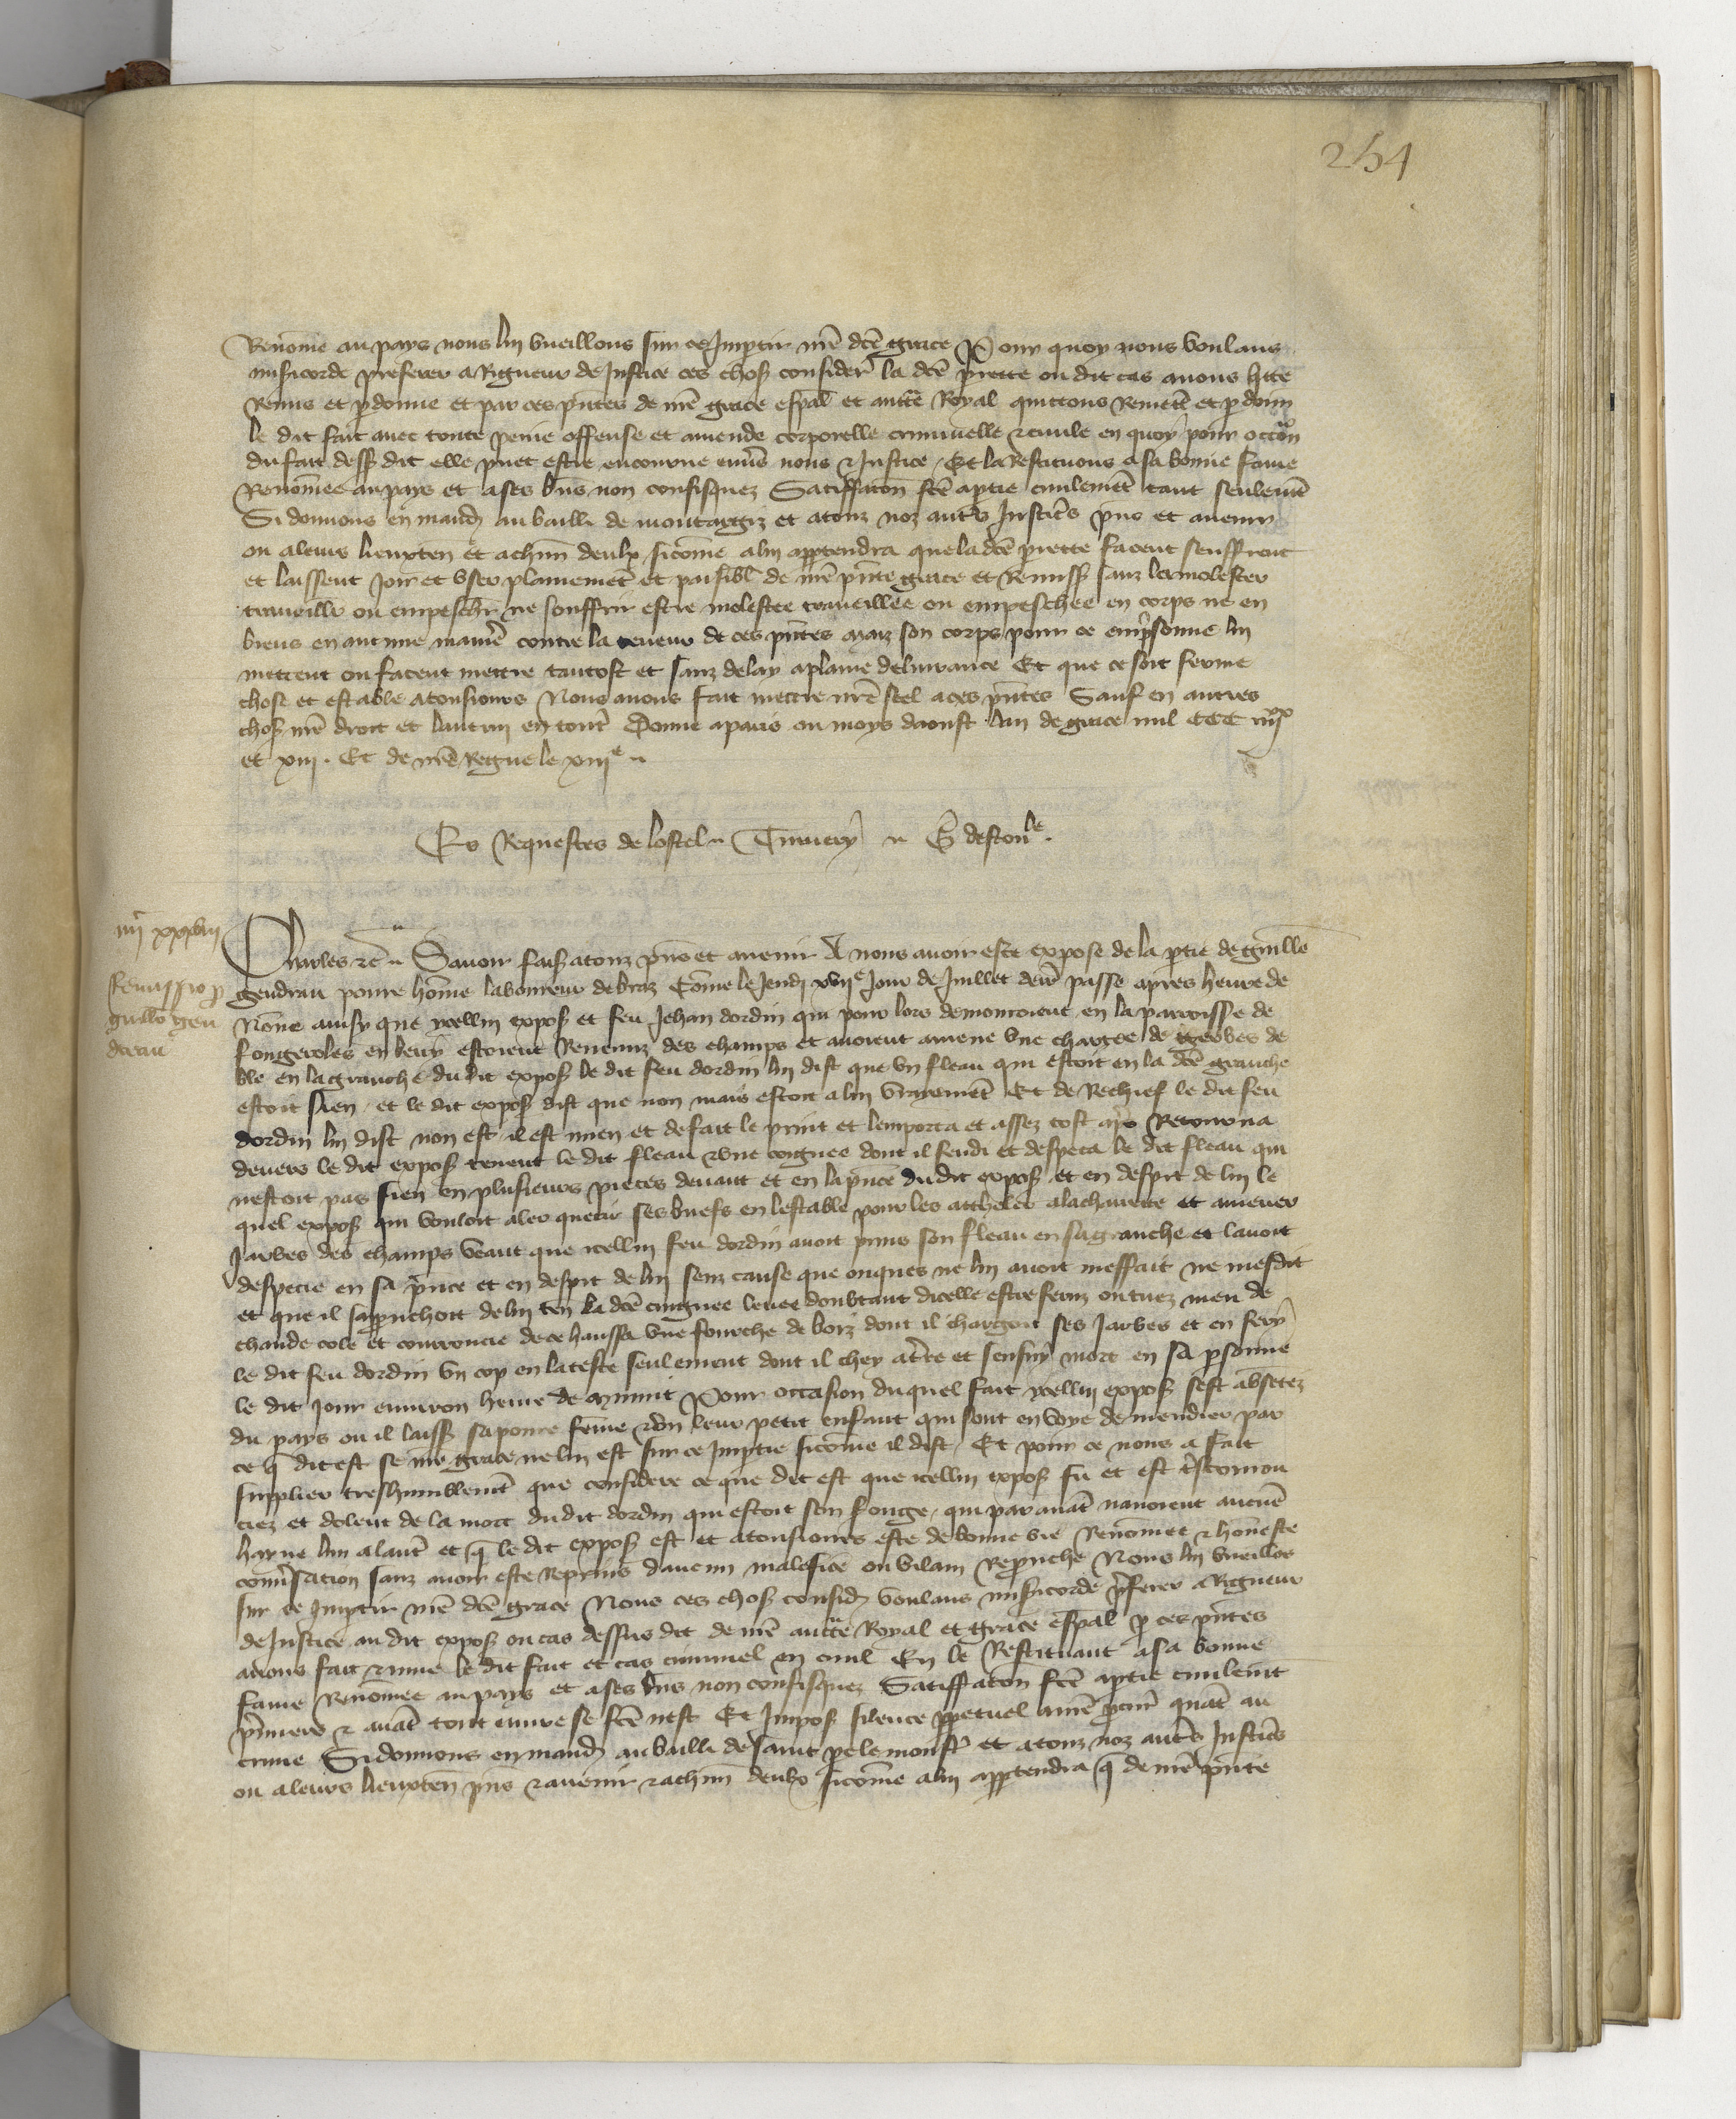 254
Renomee au pays nous lui vueillons sur ce impartir nrē dcē grace Pour quoy nous voulans
misicorde preferer a Rigueur de Justice ces choses considerees la dcē prette ou dit cas avons
Remis et pdonne et par ces pntes de nrē grace espal et auctē Royal quittons Remetts et pdonn
le dit fait avec toute peine offense et amende corporelle criminelle et civile en quoy pour occōn
du fait dess dit elle puet estre encourue envs nous et Justice Et la Restituons a sa bonne fame
Renomee au pays et a ses bns non confisquez Satiffacōn fcē a ptie civilemēt tant seulemēt
Si donnons en mand au bailli de montargiz et a touz noz autrs Justicrs pns et avenir
ou a leurs lieuxten et a chun deulx sicōme a lui apptendra que la dcē prette facent seuffrent
et laissent Joir et user plainemēt et paisibl de nrē pnte grace et Remiss sanz la molester
traveillr ou empeschr ne souffrir estre molestee traveillee ou empeschee en corps ne en
biens en aucune maniē contre la teneur de ces pntes maiz son corps pour ce emprisonne lui
mettent ou facent mettre tantost et sanz delay a plaine delivrance Et que ce soit ferme
chose et estable a tousiours Nous avons fait mettre nrē scel a ces pntes Sauf en autres
choses nrē droit et lautrui en toutes Donne a paris ou moys daoust lan de grace mil CCC iiijxx
et xiij . Et de nrē Regne le xiije
Es Requestes de lostel Tiuuery G destoule .
iiijc xxxviij
Remissio p
guillo gen
dreau
Charles etc Savoir faiss a touz pns et avenir A nous avoir este expose de la ptie de guillē
gendrau povre hōme laboureur de braz Cōme le Jeudi xviie Jour de Juillet dern passe apres heure de
Nōne ainsy que ycellui expos et feu Jehan dordin qui pour lors demouroient en la parroisse de
fongeroles en berry estoient Revenuz des champs et avoient amene une chartee de gerbes de
ble en la granche du dit expos le dit feu dordin lui dist que un fleau qui estoit en la dcē granche
estoit sien et le dit expos dist que non mais estoit a lui vrayemēt Et de Rechief le dit feu
dordin lui dist non est il est mien et de fait le print et lemporta et assez tost aps Retourna
devers le dit expos tenent le dit fleau et une coignee dont il fendi et despeca le dit fleau qui
nestoit pas sien en plusieurs pieces devant et en la pnce du dit expos et en despit de lui le
quel expos qui vouloit aler querir ses buefs en lestable pour les attheler a la charrette et amener
Jarbes des champs veant que icellui feu dordin avoit prins son fleau en sa granche et lavoit
despecie en sa pnce et en despit de lui senz cause que onques ne lui avoit meffait ne mesdit
et que il sapruchoit de lui ten la dcē cuignee levee doubtant dicelle estre feruz ou tuez meu de
chaude cole et couroucie de ce haussa une fourche de boiz dont il chargoit ses Jarbes et en fery
le dit feu dordin un cop en la teste seulement dont il chey a trre et sensuy mort en sa psonne
le dit jour environ heure de mynuit Pour occasion du quel fait ycellui expos sest absētez
du pays ou il laiss sa povre fēme et un leur petit enfant qui sont en voye de mendier par
ce q dit est se nrē grace ne lui est sur ce imptie sicōme il dist Et pour ce nous a fait
supplier treshumblemēt que considere ce que dit est que icellui expos fu et est trscourrou
ciez et dolent de la mort du dit dordin qui estoit son songe qui par avāt navoient aucunē
hayne lun a lautr et q le dit expos est et a tousiours este de bonne vie Renommee et honneste
convrsation sanz avoir este reprins daucun malefice ou vilain Reprouche Nous lui vueillōs
sur ce imptir nrē dcē grace Nous ces choses consid voulans misicorde prferer a Rigueur
de Justice au dit expos ou cas dessus dit de nrē auctē Royal et grace espal p ces pntes
avons fait et mue le dit fait et cas criminel en civil En le Restituant a sa bonne
fame Renōmee au pays et a ses bns non confisquez Satiffacōn fcē a ptie civilemt
prmiers et avāt tout euvre se fcē nest Et Impos silence ppetuel a nrē pcur quāt au
crime Si donnons en mand au bailli de saint pe le monstr et a touz noz autrs Justicrs
ou a leurs lieuxten pns et avenir et a chun deulx sicōme a lui apptendra q de nrē pnte